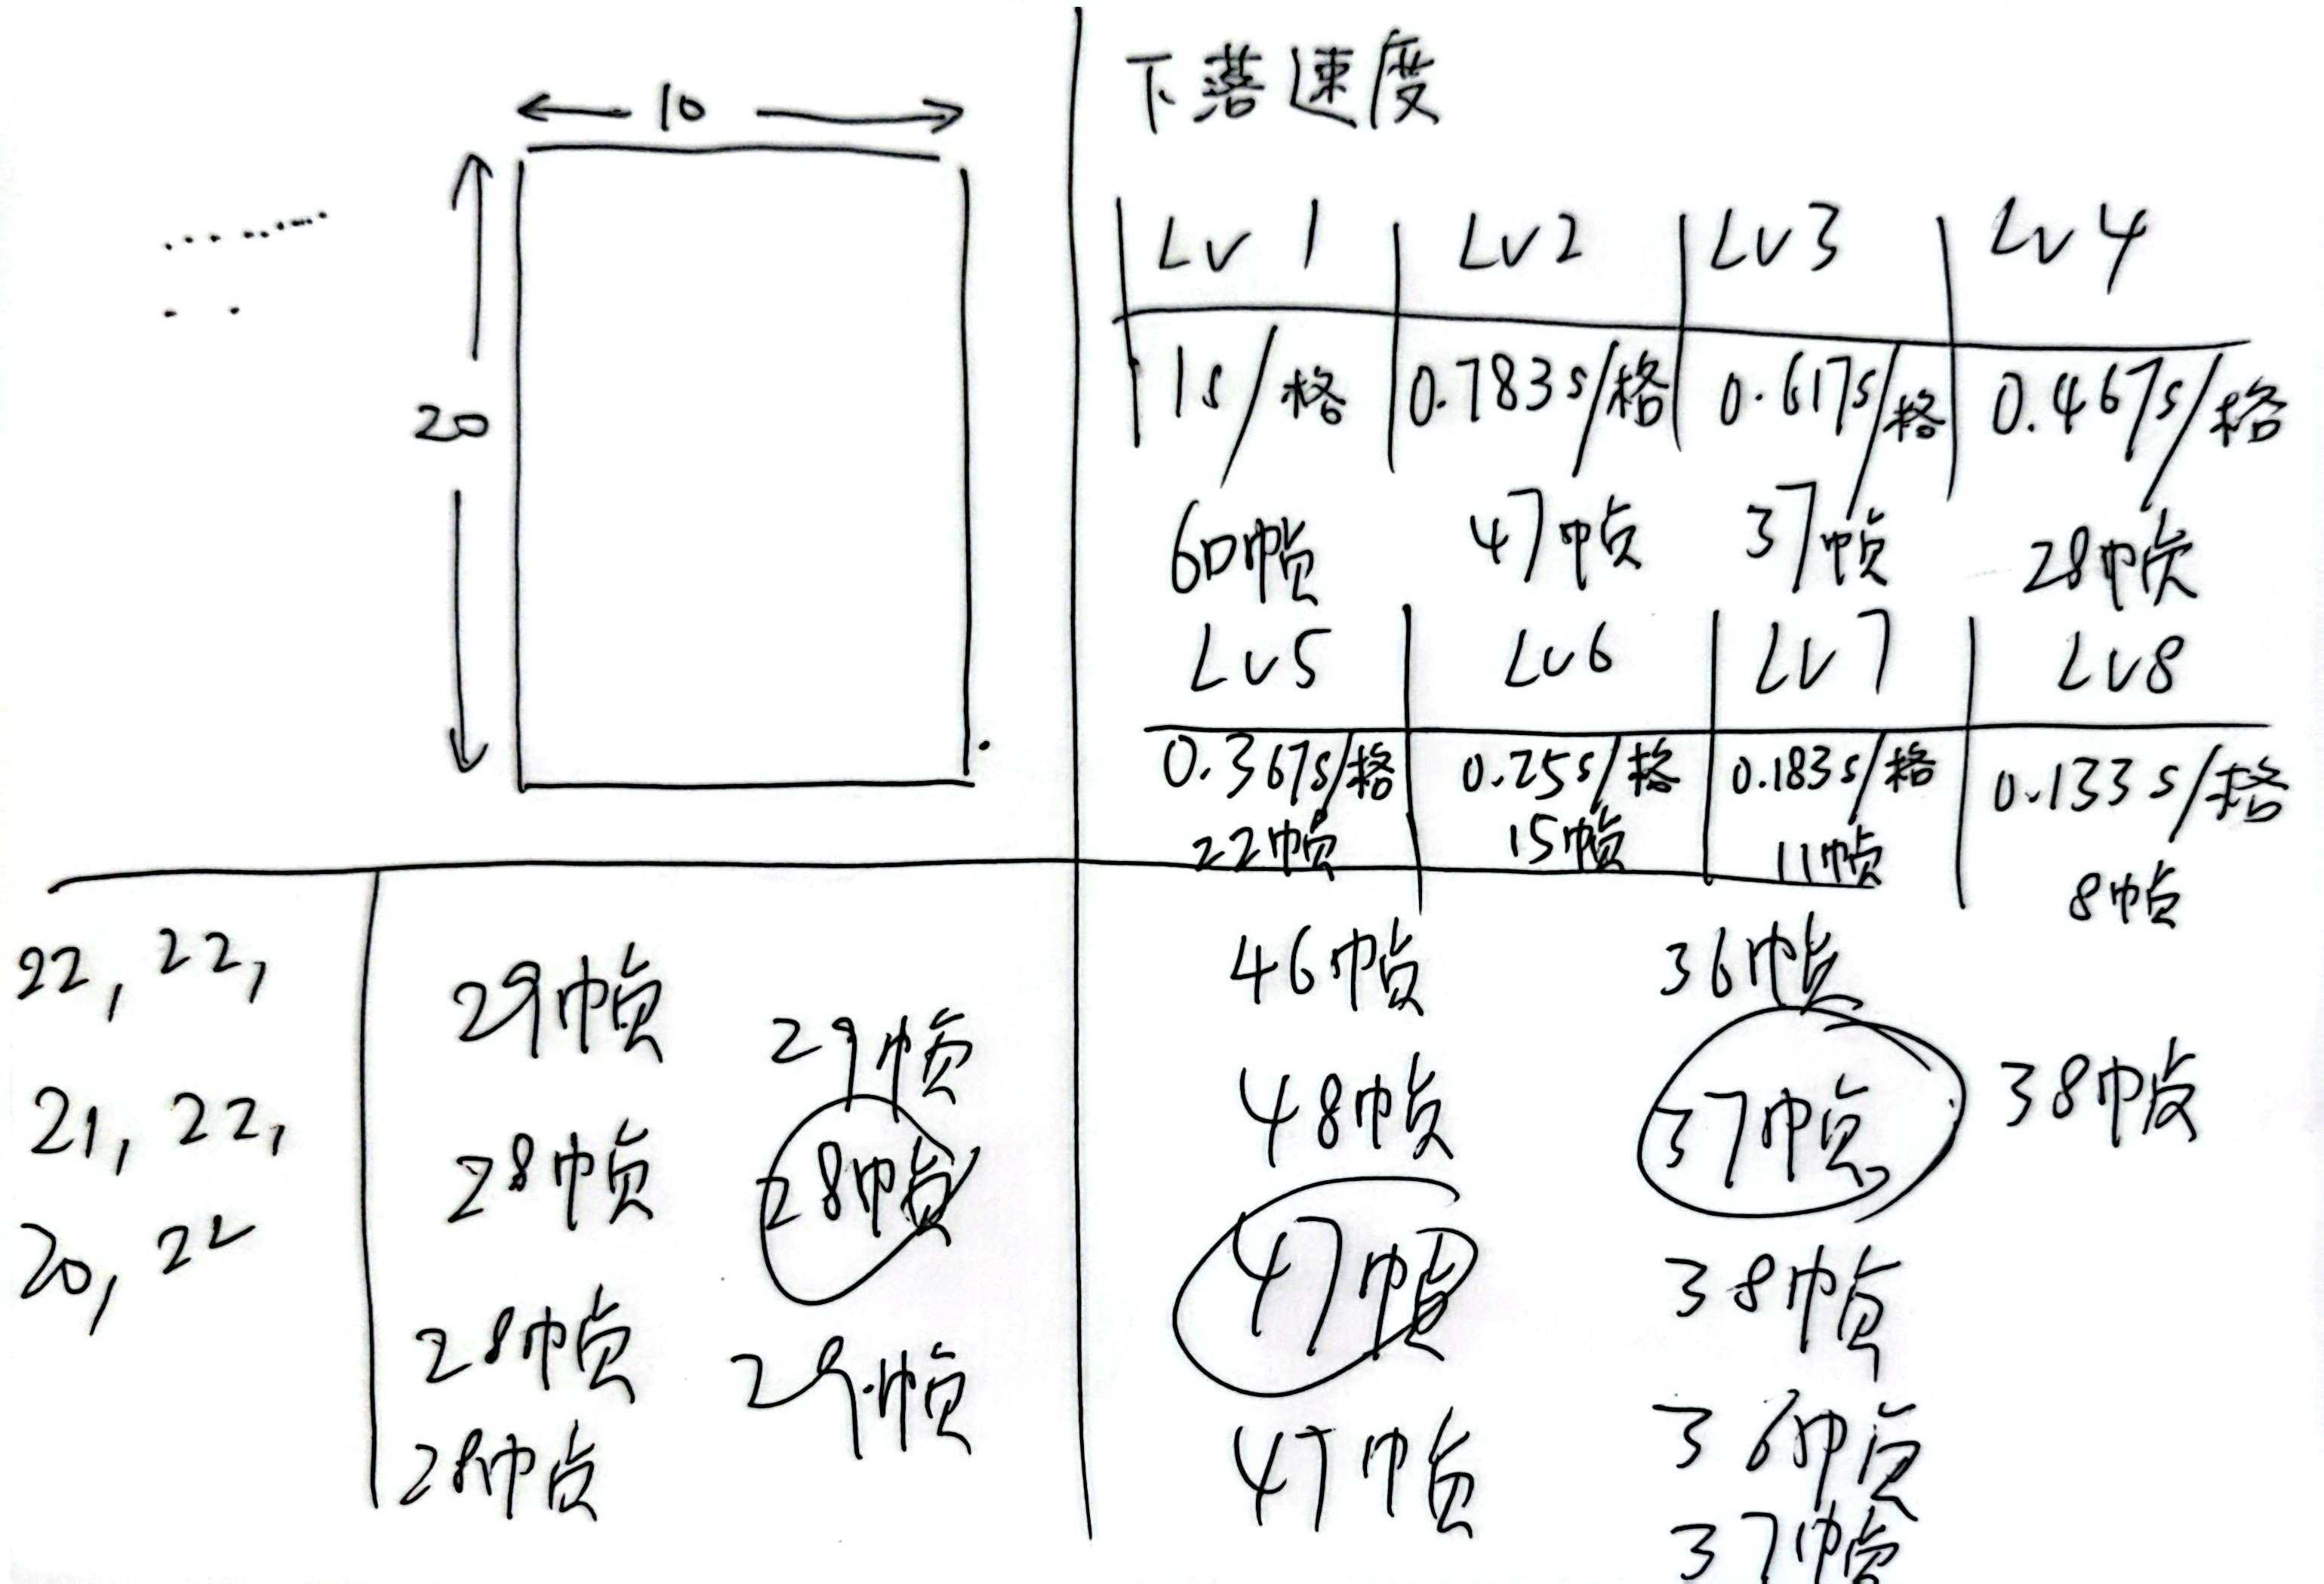 10
20
下落速度
Lv 1 Lv2 Lv3 Lv4
1s/格 0.783s/格 0.617s/格 0.467s/格
60帧 47帧 37帧 28帧
Lv5 Lv6 Lv7 Lv8
0.367s/格 0.25s/格 0.183s/格 0.133s/格
22帧 15帧 11帧 8帧
22, 22,
21, 22,
20, 22
29帧 29帧
28帧 28帧
28帧 29帧
28帧
46帧 36帧
48帧 37帧 38帧
47帧 38帧
47帧 36帧
37帧